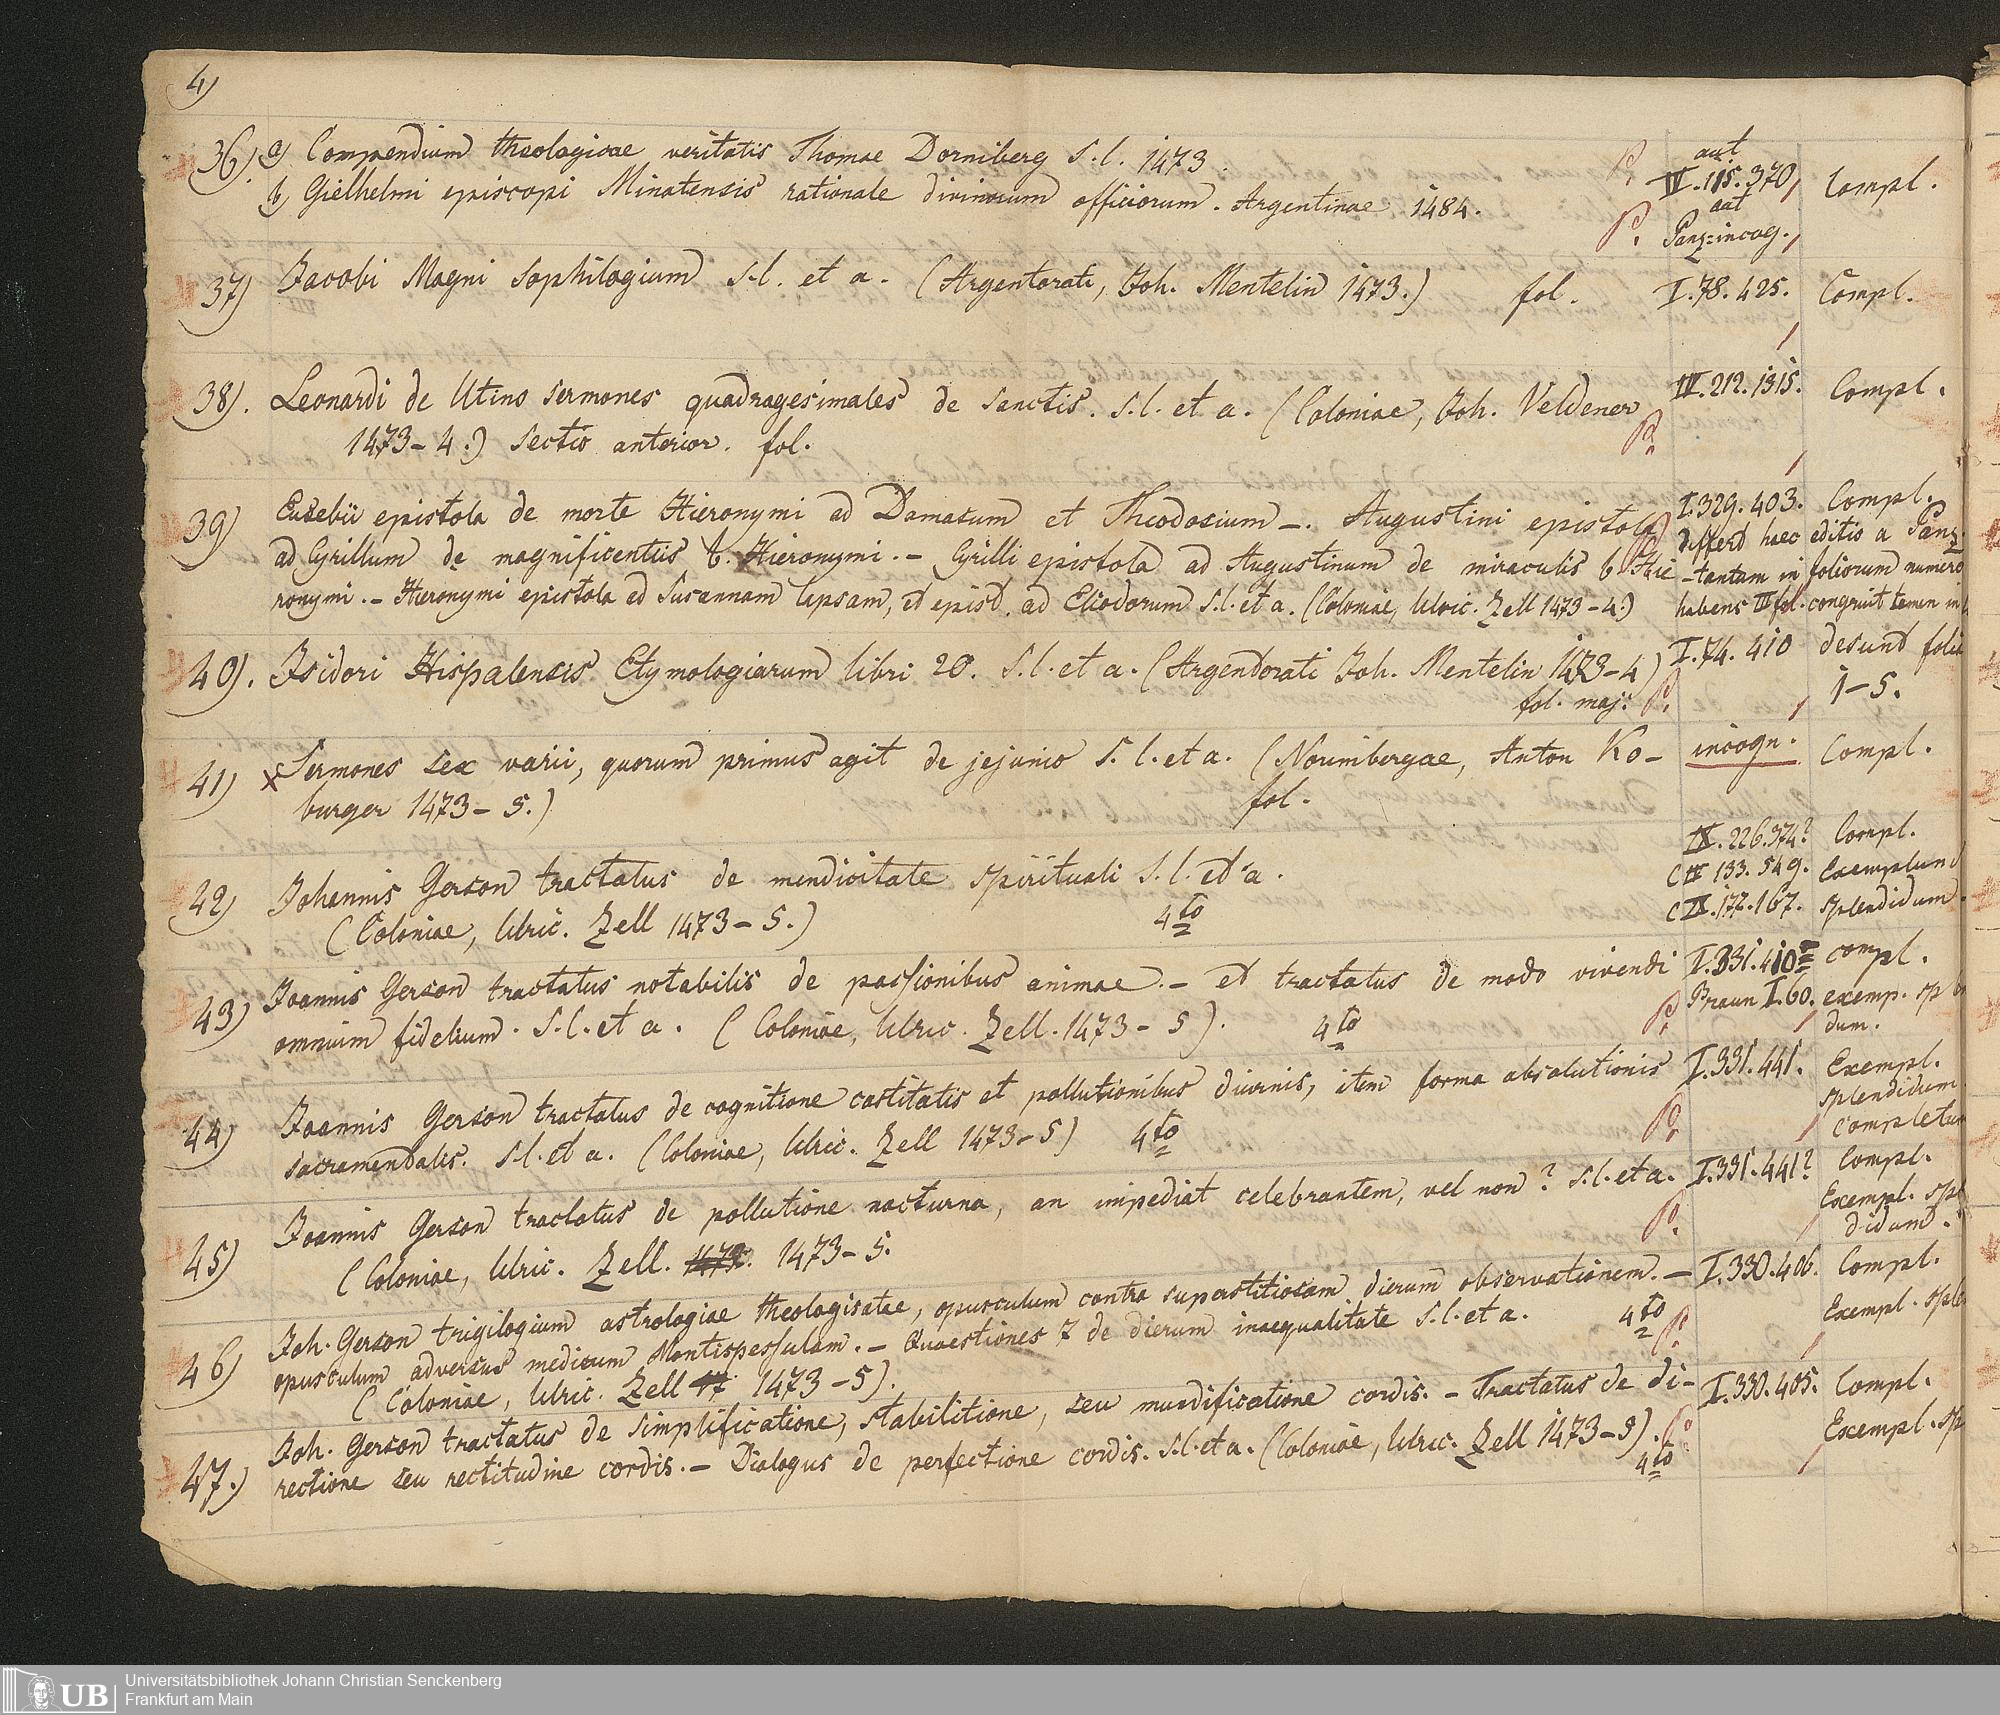 4)
36). a) Compendium theologicae veritatis Thomae Dorniberg S. l. 1473. P. aut IV. 115. 370, Compl.
b) Gielhelmi episcopi Minatensis rationale divinorum officiorum. Argentinae 1484. P. aut Panz: incog.
37) Jacobi Magni Sophilogium S. l. et a. (Argentorati, Joh. Mentelin 1473.) fol. I. 78. 425. Compl.
38). Leonardi de Utino sermones quadragesimales de Sanctis. S. l. et a. (Coloniae, Joh. Veldener P. IV. 212. 1315. Compl.
1473-4.) Sectio anterior. fol.
39) Eusebii epistola de morte Hieronymi ad Damasum et Theodosium -. Augustini epistola I. 329. 403. Compl.
ad Cyrillum de magnificentiis b. Hieronymi. - Cyrilli epistola ad Augustinum de miraculis b. Hie differt haec editio a Panz.
-tantum in foliorum numero
ronymi. - Hieronymi epistola ad Susannam lapsam, et epist. ad Eliodorum S. l. et a. (Coloniae, Ulric. Zell 1473-4.) habens III fol. congruit tamen in
40). Isidori Hispalensis Etymologiarum libri 20. S. l. et a. (Argentorati Joh. Mentelin 1473-4) I. 74. 410 desunt folia
fol. maj. P. 1-5.
41) x Sermones sex varii, quorum primus agit de jejunio S. l. et a. (Norimbergae, Anton Ko- incogn. Compl.
burger 1473-5.) fol.
42) Johannis Gerson tractatus de mendicitate spirituali S. l. et a. IX. 226. 374? Compl.
C IV 133. 549. Exemplum
(Coloniae, Ulric. Zell 1473-5.) 4to C IX. 177. 167. splendidum.
43) Joannis Gerson tractatus notabilis de passionibus animae. - et tractatus de modo vivendi I. 331. 410 compl.
omnium fidelium. S. l. et a. (Coloniae, Ulric. Zell. 1473-5). 4to P. Braun I. 60. exemp.
dum.
44) Joannis Gerson tractatus de cognitione castitatis et pollutionibus diurnis, item forma absolutionis I. 331. 441. Exempl.
splendidum
sacramentalis. S. l. et a. (Coloniae, Ulric. Zell 1473-5) 4to P. completum
45) Joannis Gerson tractatus de pollutione nocturna, an impediat celebrantem, vel non? S. l. et a. I. 331. 441? Compl.
P. Exempl. spl
didum.
(Coloniae, Ulric. Zell. 1473. 1473-5.
46) Joh. Gerson trigilogium astrologiae theologisatae, opusculum contra superstitiosam dierum observationem. - I. 330. 406. Compl.
opusculum adversus medicum Montispessulam. - Quaestiones 7 de dierum inaequalitate S. l. et a. 4to P. Exempl. sple
(Coloniae, Ulric. Zell 17. 1473-5).
47.) Joh. Gerson tractatus de simplificatione, stabilitione, seu mundificatione cordis. - Tractatus de di- I. 330. 405. Compl.
rectione seu rectitudine cordis. - Dialogus de perfectione cordis. S. l. et a. (Coloniae, Ulric. Zell 1473-5). P. Exempl. sp
4to
Universitätsbibliothek Johann Christian Senckenberg
Frankfurt am Main
UB